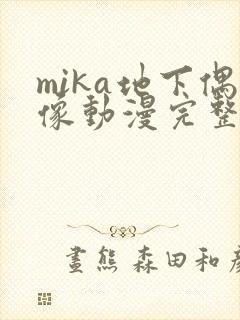 mika地下偶
像動漫完整
畫熊 森田和彥